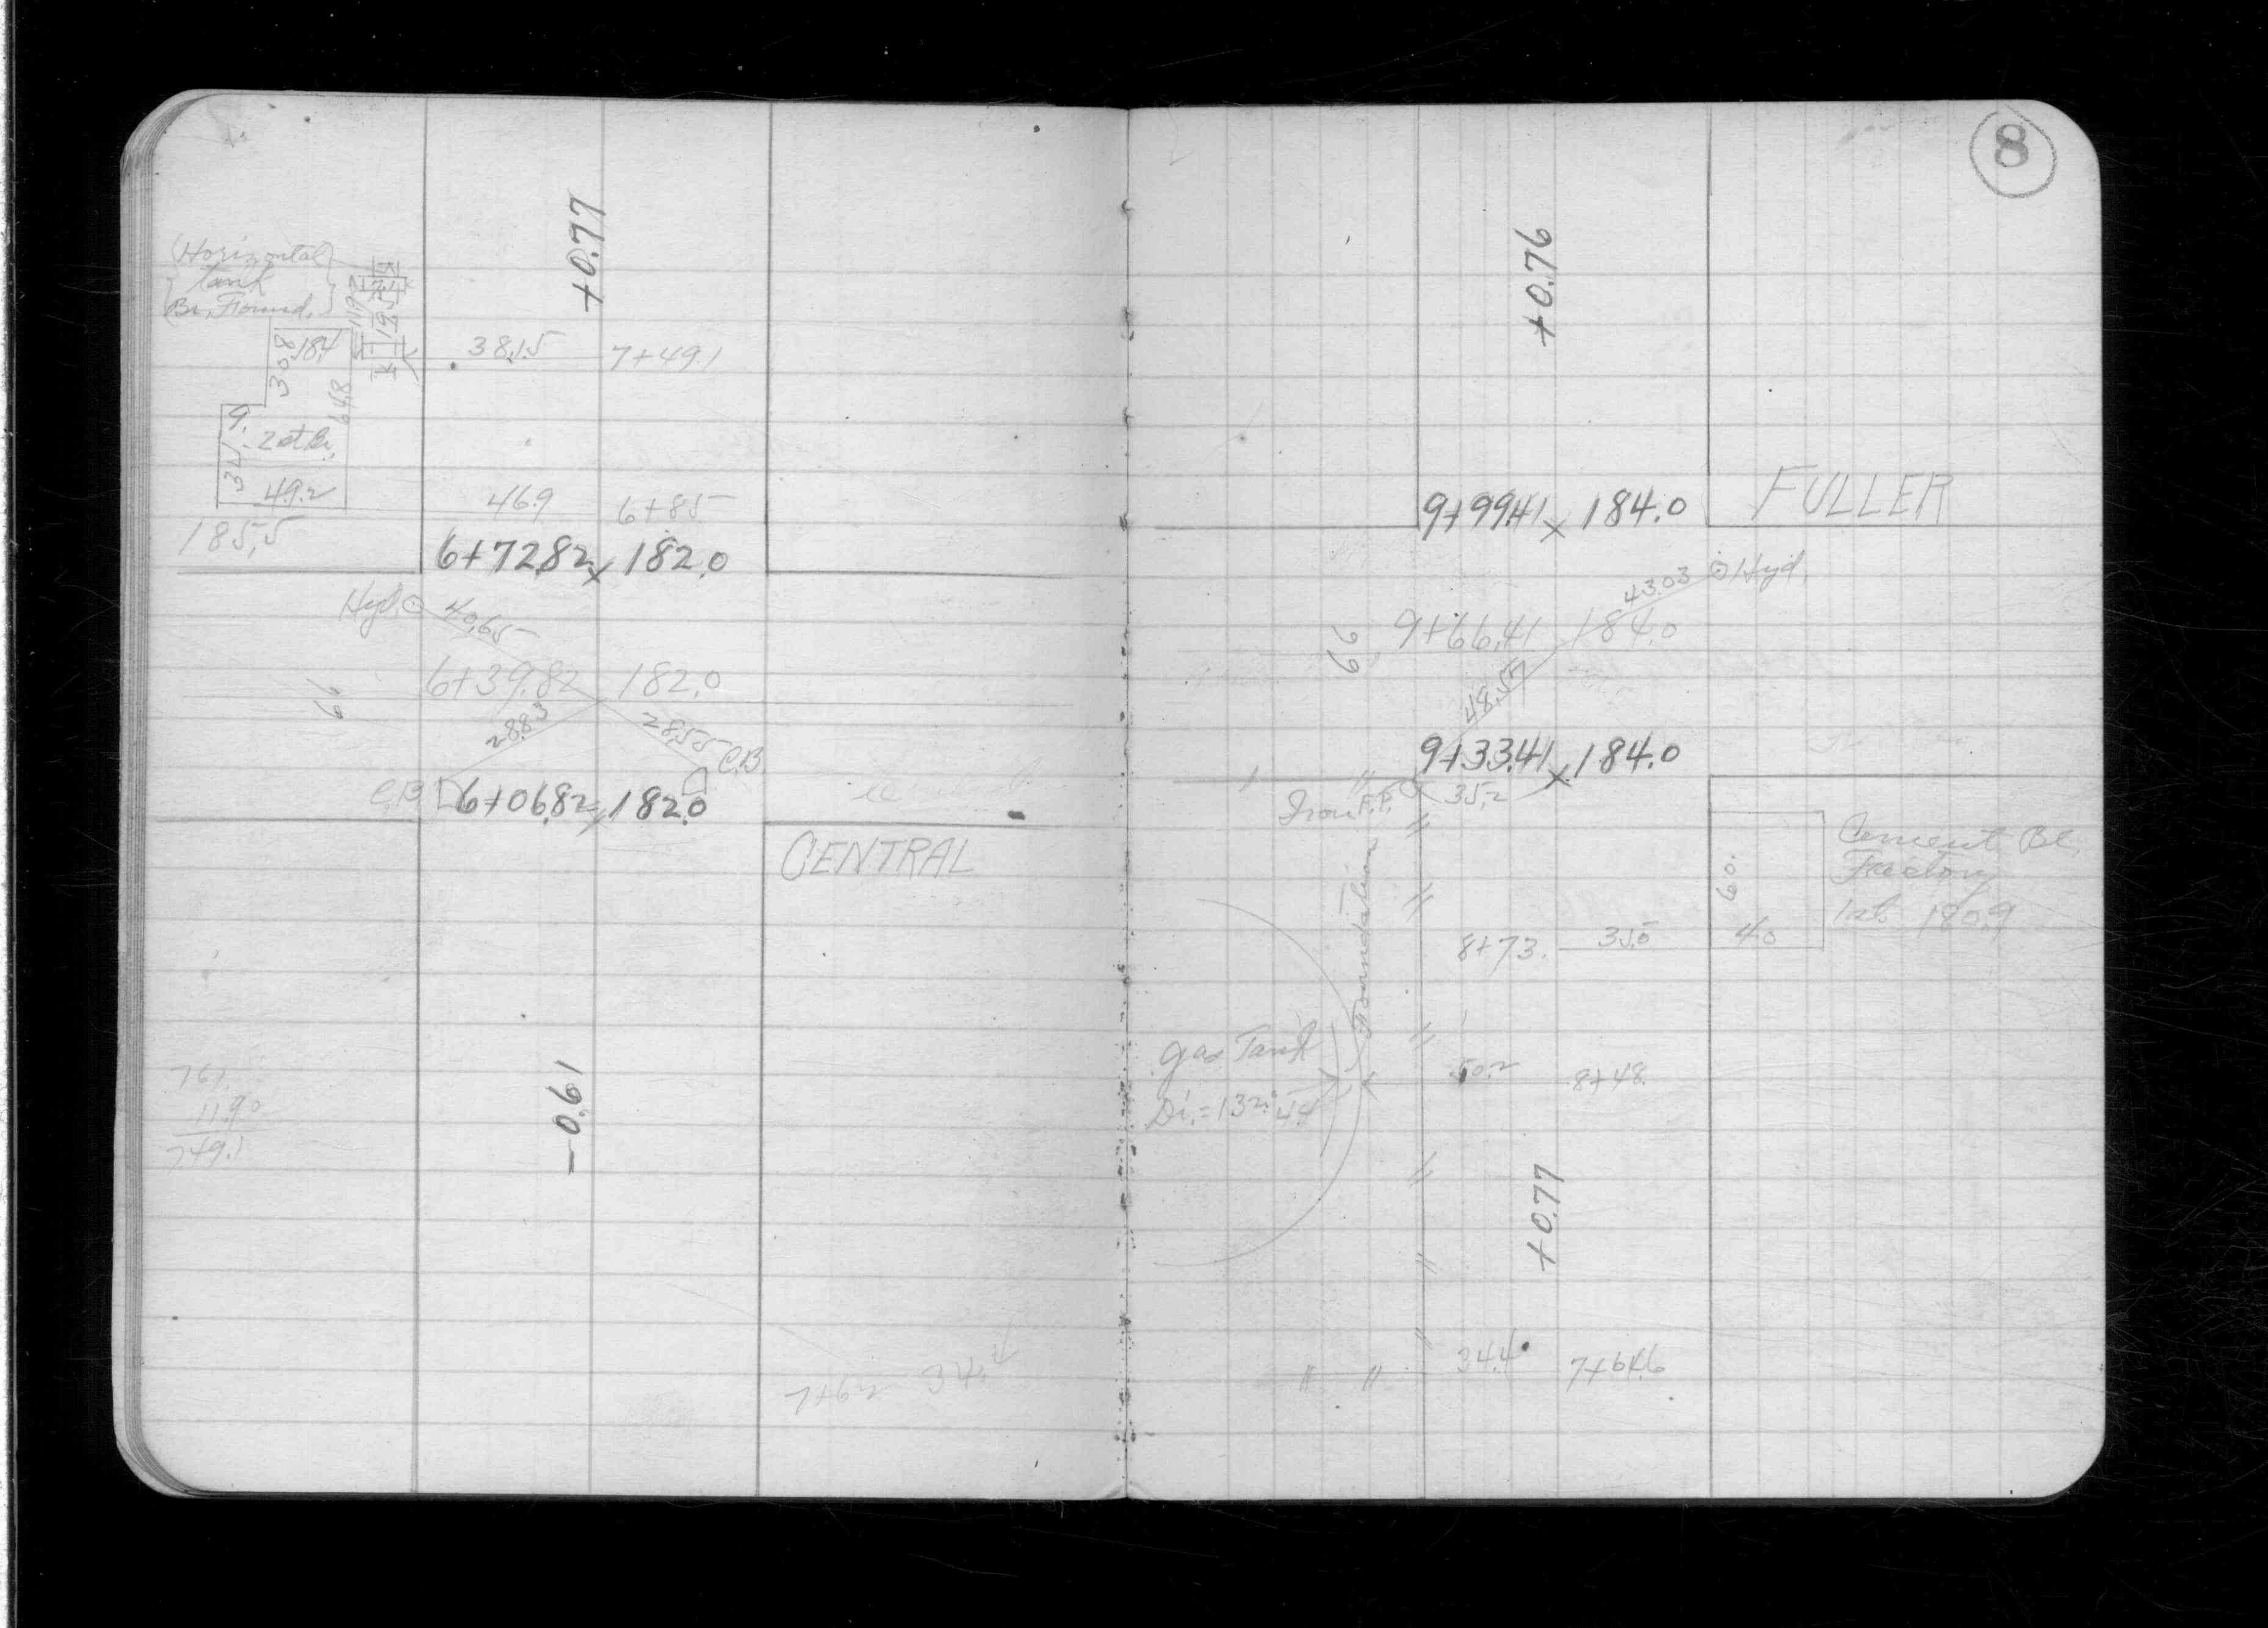 +0.77
(Horizontal)
Tank
Br. Found.
30.8
18.4
38.15 7+49.1
64.8
9.
2 st Br.
34.
49.2
46.9 6+85
185.5
6+72.82 x 182.0
Hyd. 40.65
6+39.82 182.0
66
28.83
28.55 C.B.
C.B. 6+06.82 x 182.0
CENTRAL
-0.61
761.
11.90
749.1
7+62 34.
8
+0.76
9+99.41 x 184.0
FULLER
43.03 Hyd.
66 9+66.41 184.0
48.57
9+33.41 x 184.0
Iron F.P. 35.2
Foundation
60.
Cement Bl.
Factory
1 st. 180.9
8+73. 35.5 40
Gas Tank
Di. = 132.
50.2 8+48.
+0.77
" " 34.4 7+64.6